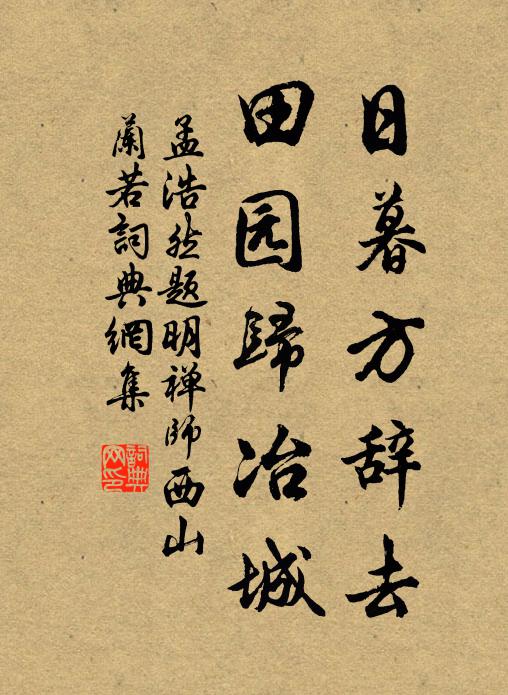 日暮方辞去
田园歸冶城
孟浩然题明禅師西山
蘭若詞典網集
詞典网印